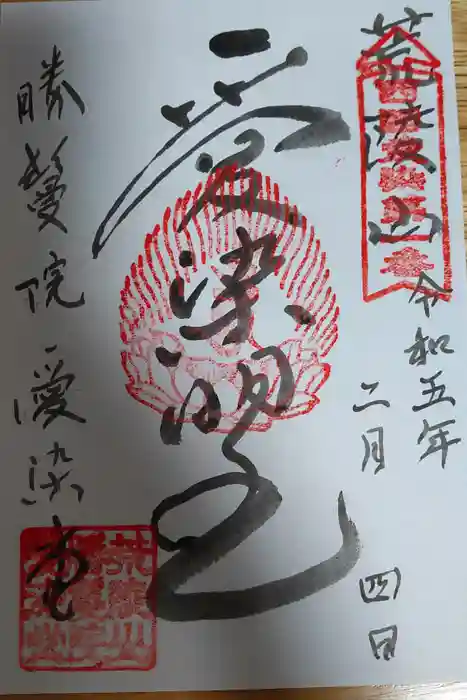 荒陵山
令和五年
二月四日
愛染明王
勝鬘院愛染堂